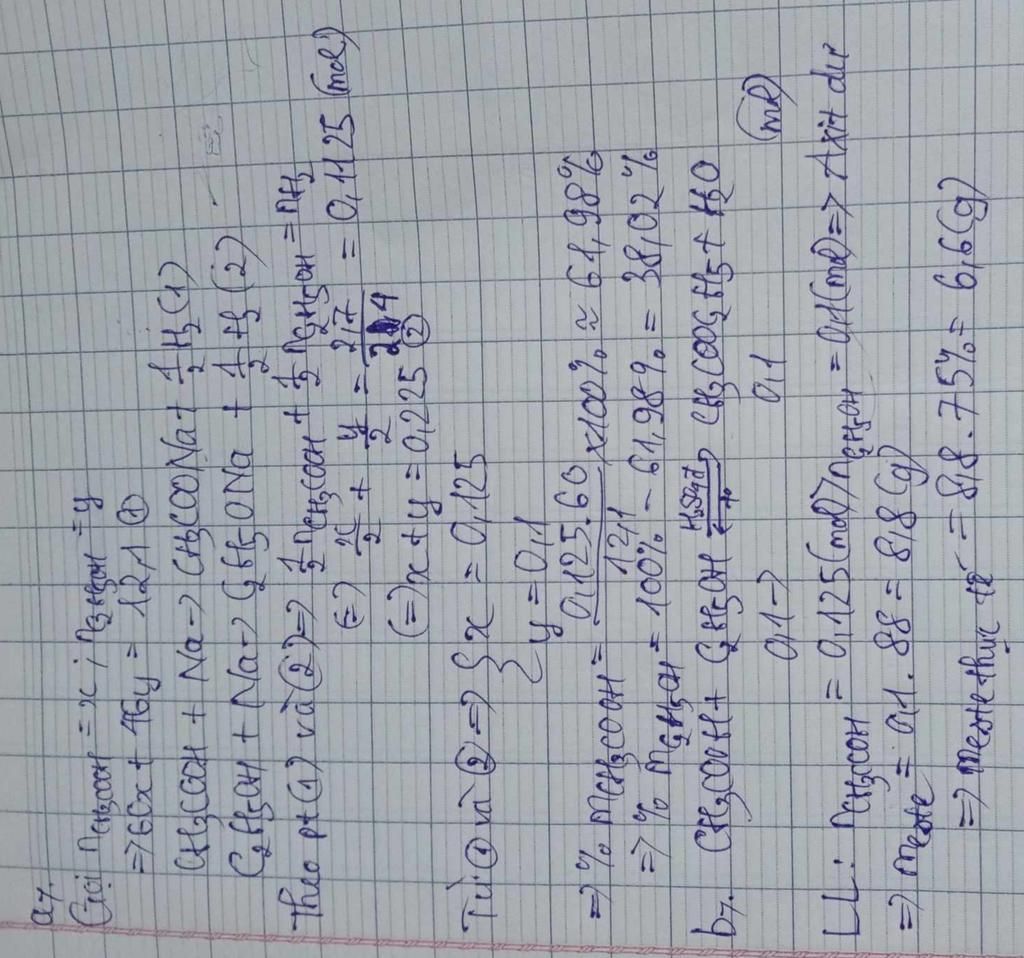 a7.
Gọi nCH3COOH = x ; nC2H5OH = y
=> 60x + 46y = 12,1 ①
CH3COOH + Na -> CH3COONa + 1/2 H2 (1)
C2H5OH + Na -> C2H5ONa + 1/2 H2 (2)
Theo pt (1) và (2) => 1/2 nCH3COOH + 1/2 nC2H5OH = nH2
(=) x/2 + y/2 = 2,7/24 = 0,1125 (mol)
(=) x + y = 0,225 ②
Từ ① và ② => { x = 0,125
y = 0,1
=> % mCH3COOH = 0,125.60/12,1 x 100% ≈ 61,98%
=> % mC2H5OH = 100% - 61,98% = 38,02%
b7. CH3COOH + C2H5OH ⇌ (H2SO4đ, to) CH3COOC2H5 + H2O
0,1 -> 0,1 (mol)
LL: nCH3COOH = 0,125 (mol) > nC2H5OH = 0,1 (mol) => Axit dư
=> meste = 0,1 . 88 = 8,8 (g)
=> meste thực tế = 8,8 . 75% = 6,6 (g)